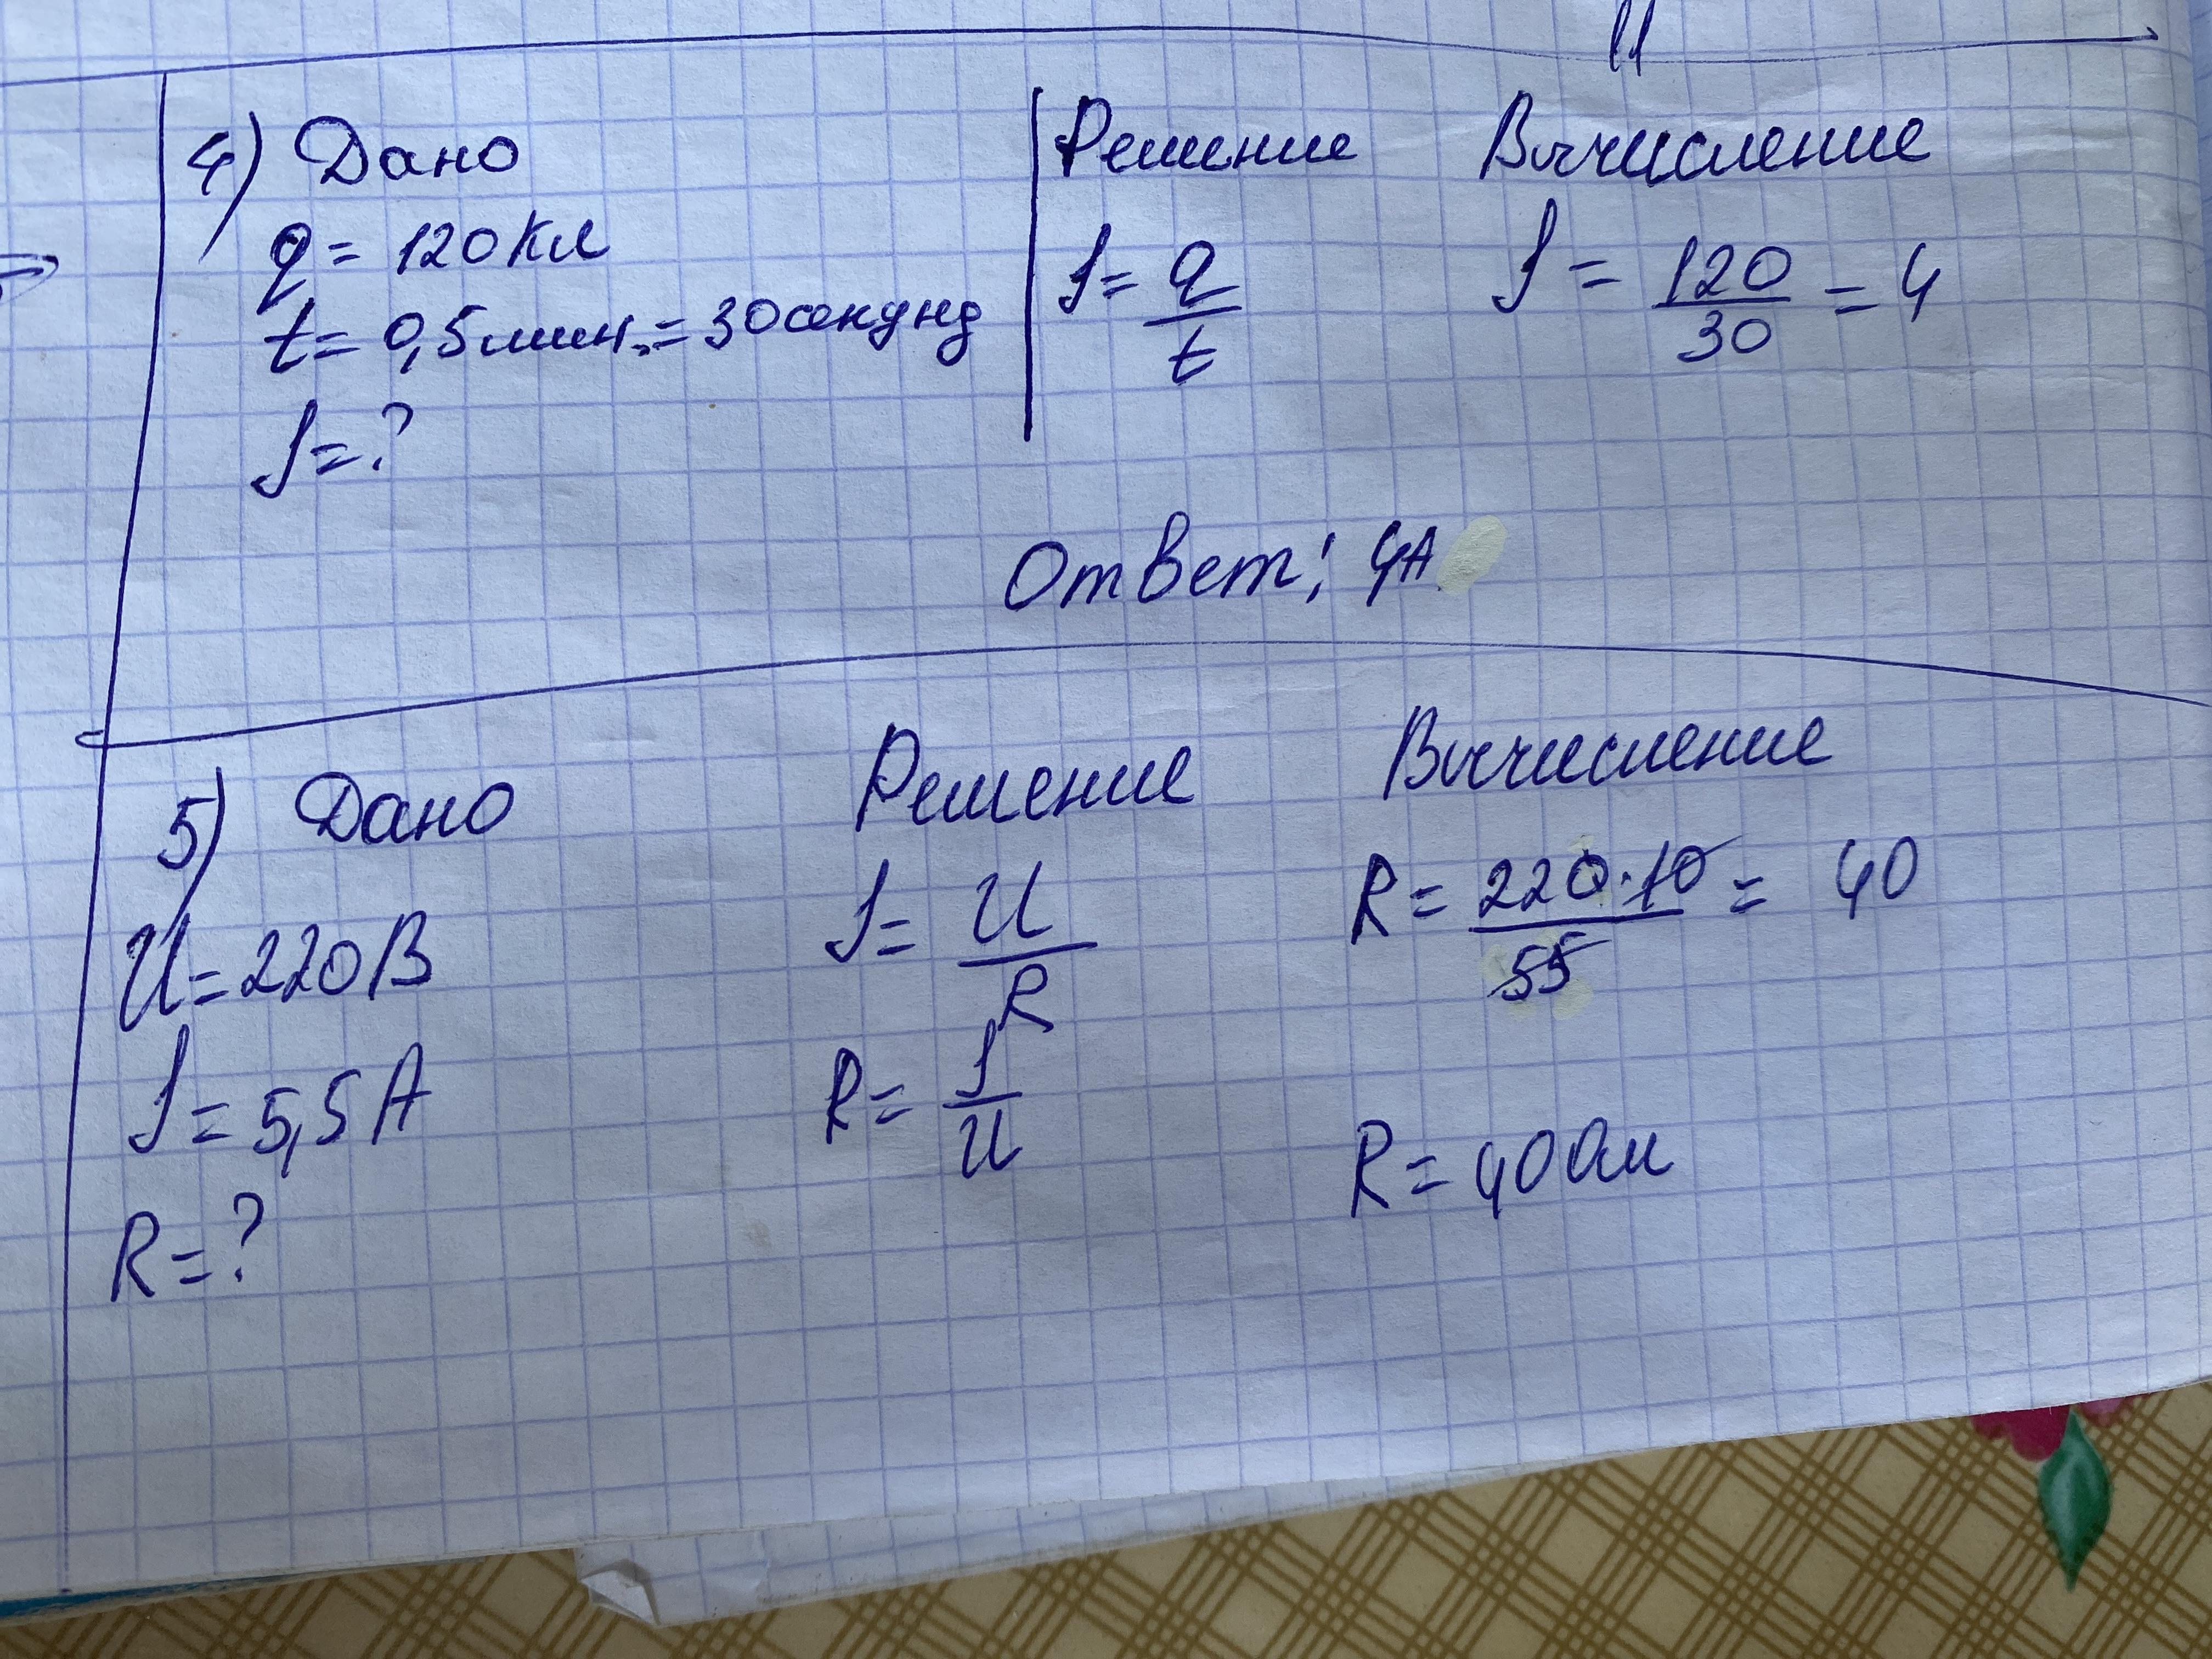 4) Дано
q = 120 Кл
t = 0,5 мин. = 30 секунд
I = ?
Решение
I = q/t
Вычисление
I = 120/30 = 4
Ответ: 4А
5) Дано
U = 220 В
I = 5,5 А
R = ?
Решение
I = U/R
R = I/U
Вычисление
R = 220·10/55 = 40
R = 40 Ом